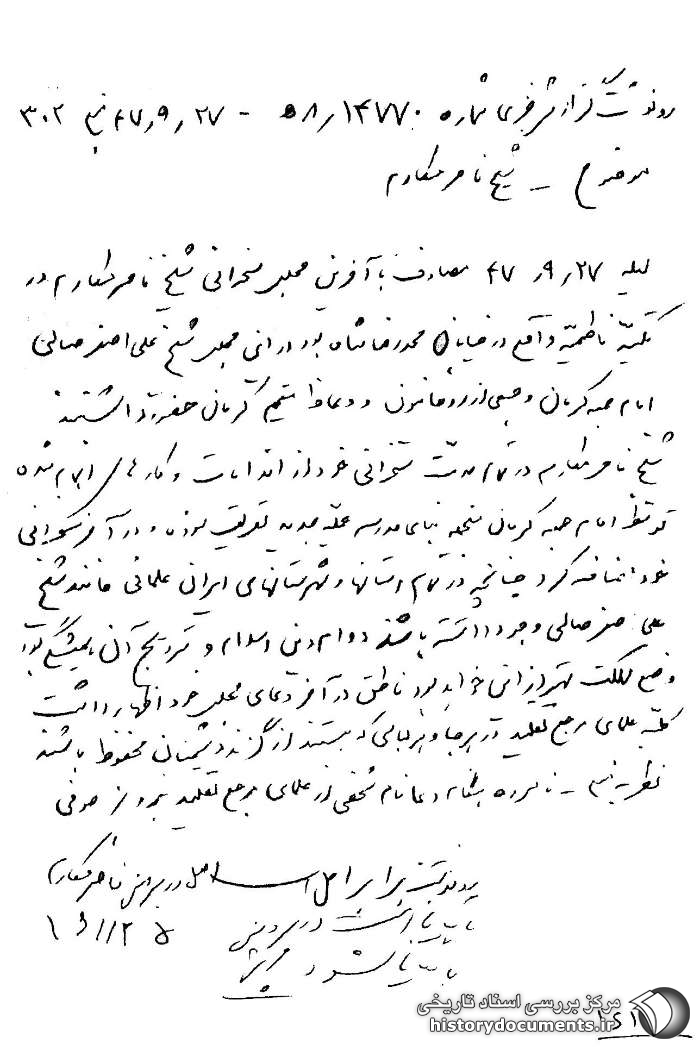 رونوشت گزارش خبری شماره ۵۸/۱۴۷۷۰ - ۴۷/۹/۲۷ نیم ۳۰۲
موضوع – شیخ ناصر مکارم
لیله ۴۷/۹/۲۷ مصادف با آخرین مجلس سخنرانی شیخ ناصر مکارم در
تکیه فاطمیه واقع در خیابان محمدرضاشاه بود در این مجلس شیخ علی اصغر صالحی
امام جمعه کرمان و جمعی از روحانیون و وعاظ مقیم کرمان حضور داشتند
شیخ ناصر مکارم در تمام مدت سخنرانی خود از اقدامات و کارهای انجام شده
توسط امام جمعه کرمان منجمله بنای مدرسه علمیه جدید تعریف نموده و در آخر سخنرانی
خود اضافه کرد چنانچه در تمام استانها و شهرستانهای ایران علمائی مانند شیخ
علی اصغر صالحی وجود داشته باشد دوام دین اسلام و ترویج آن همیشگی بود
وضع مملکت بهتر از این خواهد بود ناطق در آخر دعای مجلس خود اظهار داشت
کلیه علمای مرجع تقلید در هرجا و هر لباسی که هستند از گزند دشمنان محفوظ باشند
نظریه نیم – نامبرده هنگام دعا نام شخصی از علمای مرجع تقلید نبرد
رونوشت برابر اصل است اصل در پرونده ناصر مکارم
بایگانی است در پرونده
بایگانی شود
۱۶۱
مرکز بررسی اسناد تاریخی
historydocuments.ir